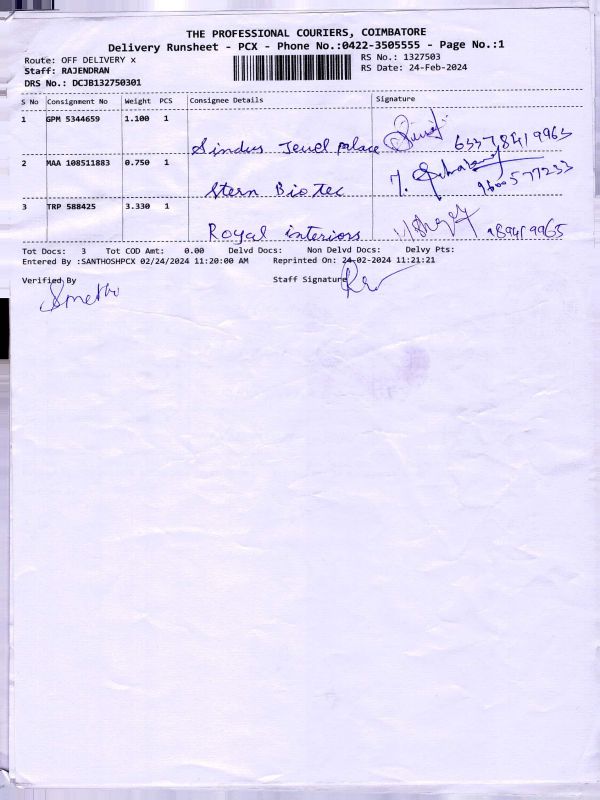 THE PROFESSIONAL COURIERS, COIMBATORE
Delivery Runsheet - PCX - Phone No.:0422-3505555 - Page No.:1
Route: OFF DELIVERY x RS No.: 1327503
Staff: RAJENDRAN RS Date: 24-Feb-2024
DRS No.: DCJB132750301
S No Consignment No Weight PCS Consignee Details Signature
1 GPM 5344659 1.100 1
Sindus Jewel palace
2 MAA 108511883 0.750 1
Stern Bio tec 9600577233
3 TRP 588425 3.330 1
Royal interiors
Tot Docs: 3 Tot COD Amt: 0.00 Delvd Docs: Non Delvd Docs: Delvy Pts:
Entered By :SANTHOSHPCX 02/24/2024 11:20:00 AM Reprinted On: 24-02-2024 11:21:21
Verified By Staff Signature